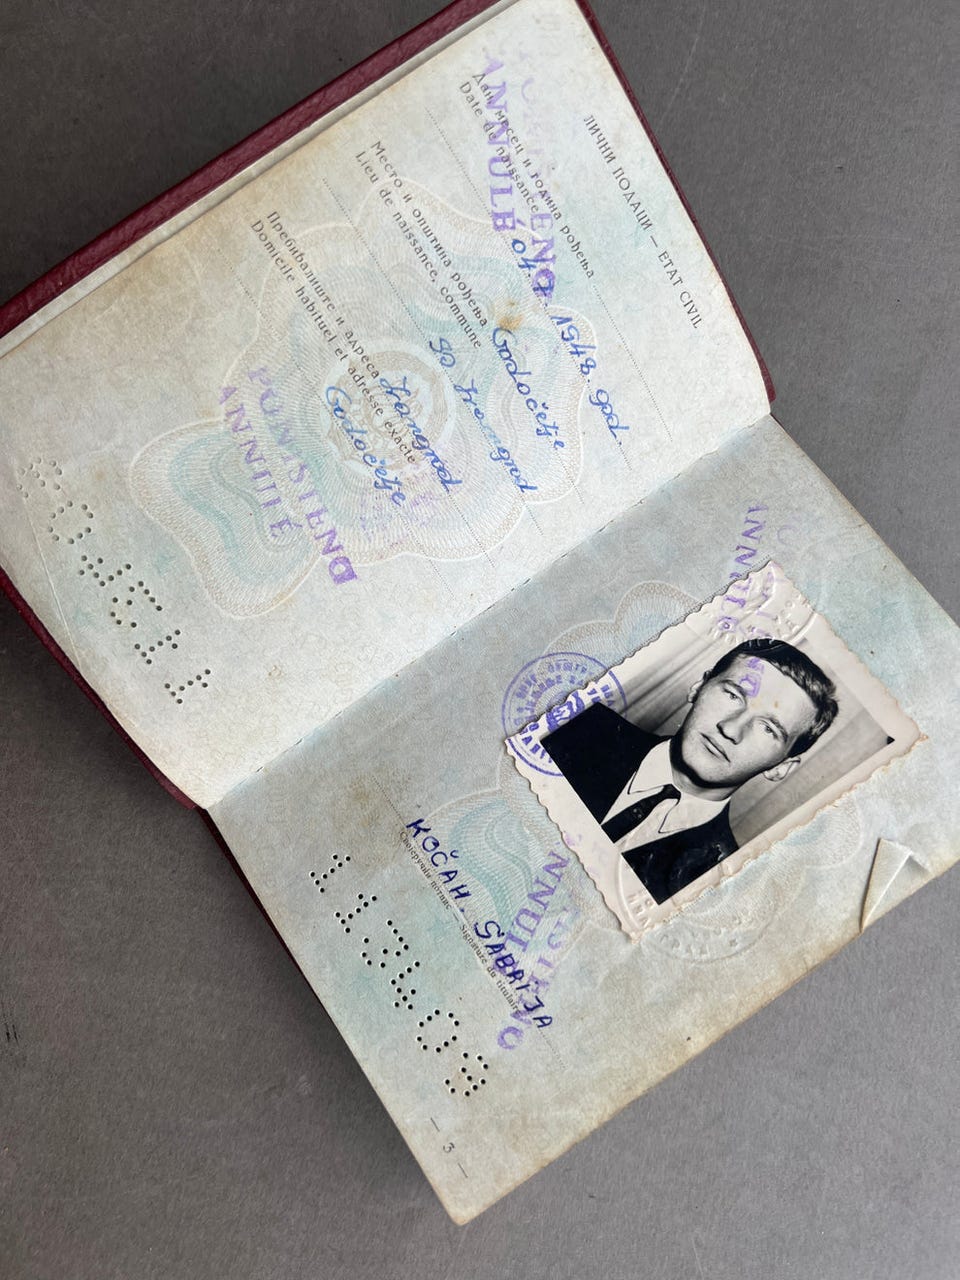 ЛИЧНИ ПОДАЦИ — ETAT CIVIL
Дан, месец и година рођења
Date de naissance
1948. god.
Место и општина рођења
Lieu de naissance, commune
Godočelje
SO Ivangrad
Пребивалиште и адреса
Domicile habituel et adresse exacte
Ivangrad
Godočelje
PONIŠTENO
ANNULÉ
PONIŠTENO
ANNULÉ
ANNULÉ
ANNULÉ
KOČAN. SABRIJA
Својеручни потпис — Signature du titulaire
— 3 —